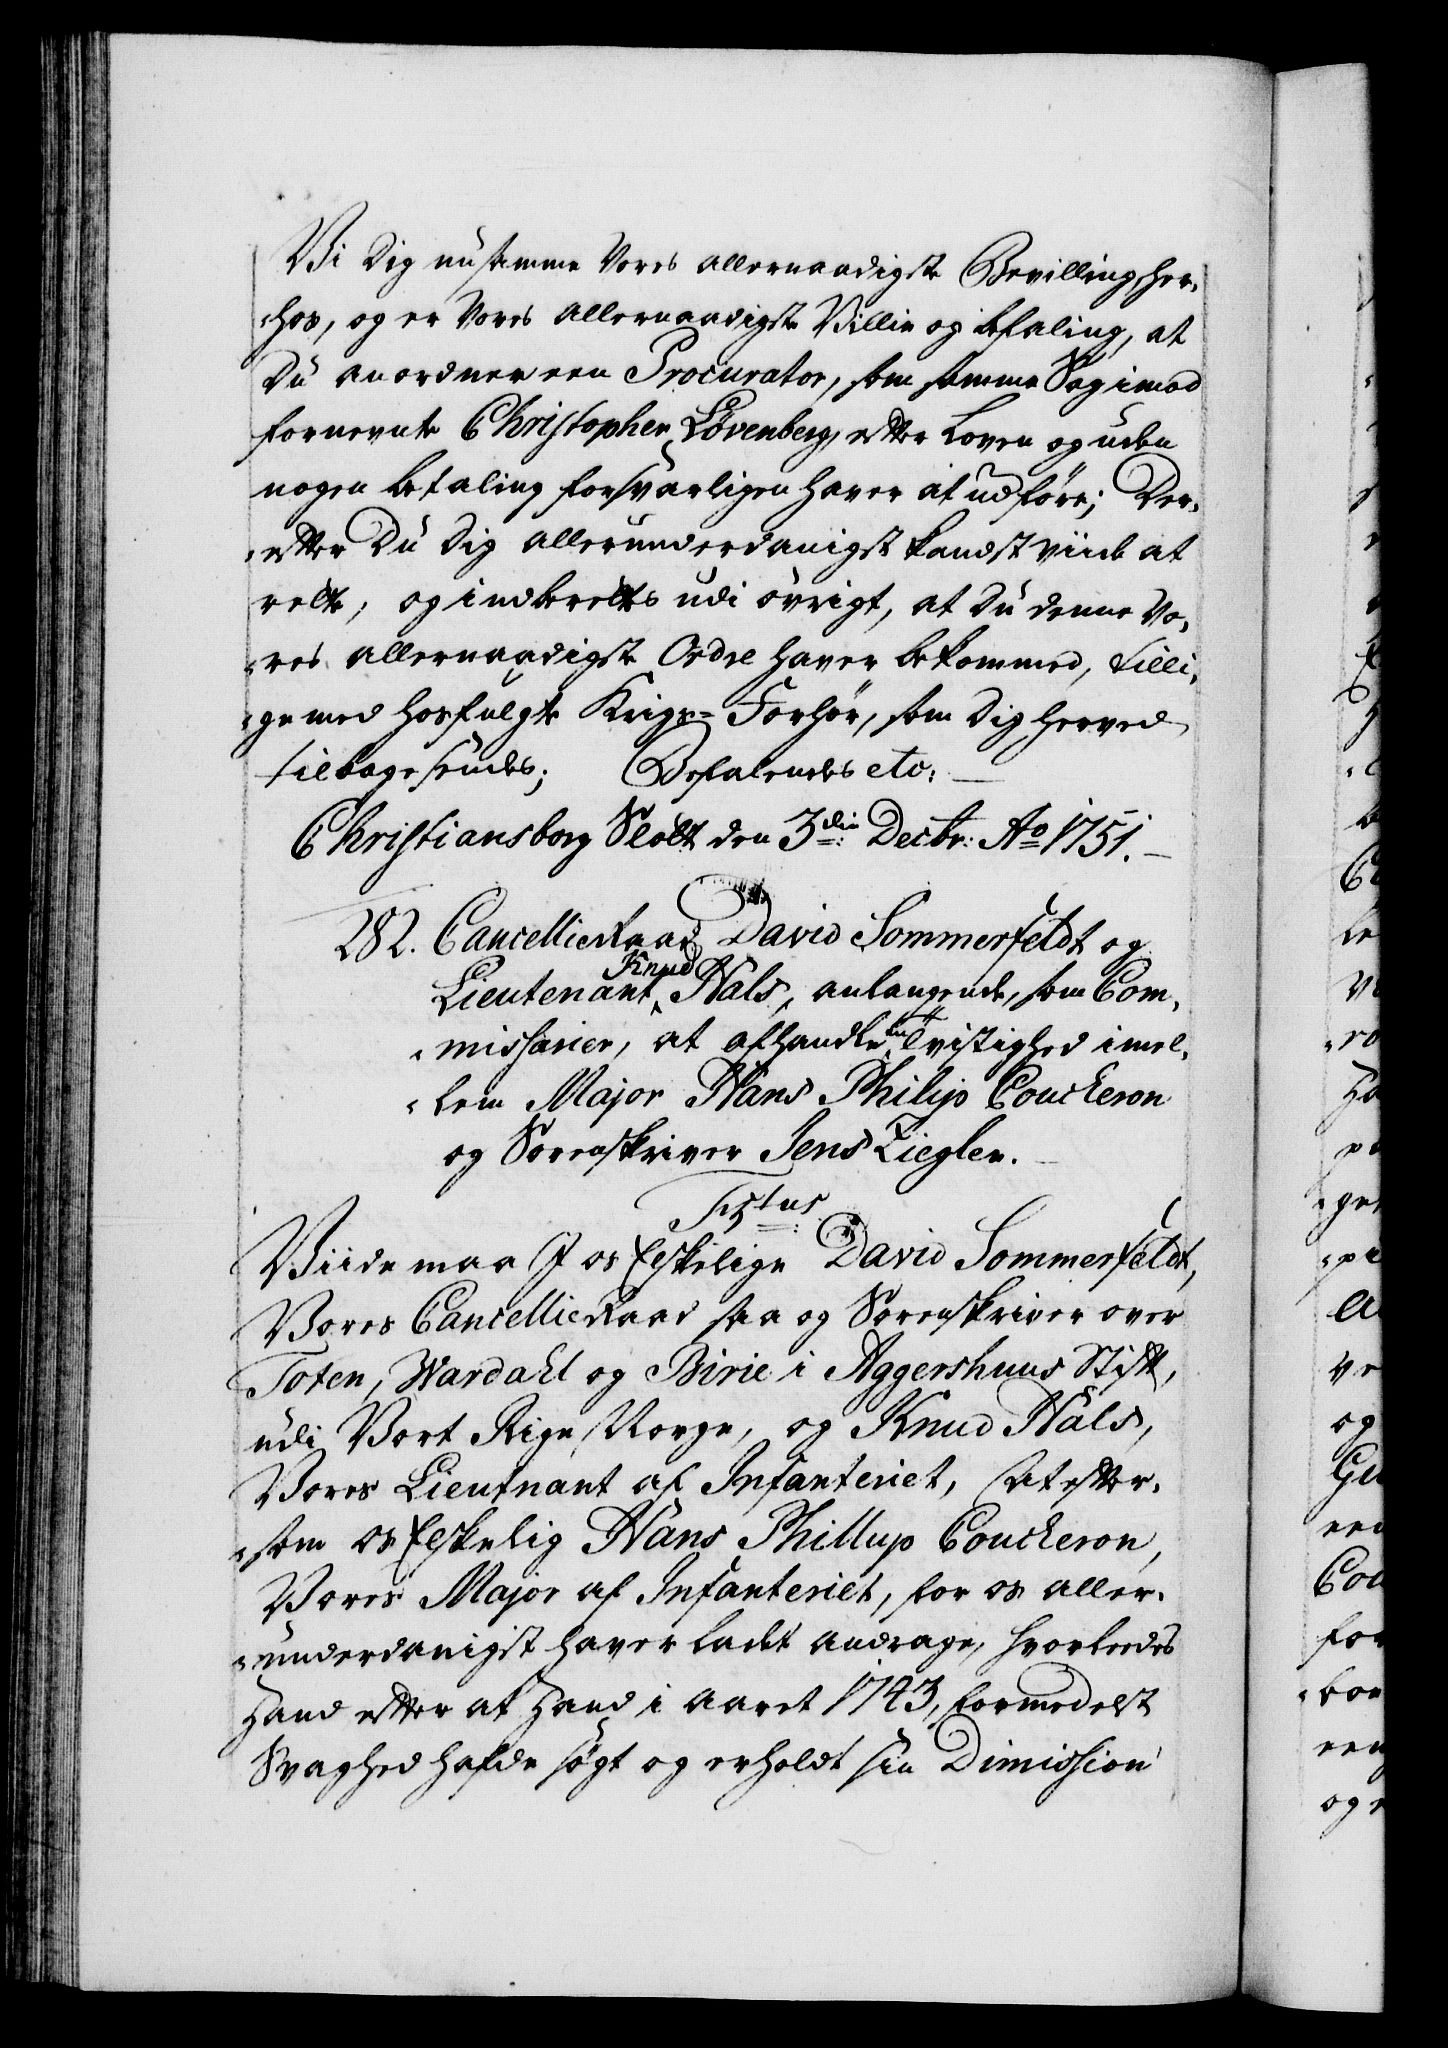 Vi Dig nu samme Vores allernaadigste Bevilling her,
„hos, og er Vores allernaadigste Villie og befaling, at
Du anordner een Procurator, som samme Sag imod
fornevnte Christopher Lövenberg, efter Loven og uden
nogen betaling forsvarligen haver at udföre; Der,
„efter Du Dig allerunderdanigst kandst viide at
rette, og indberette udi övrigt, at Du denne Vo,
„res allernaadigste Ordre haver bekommed, tilli,
„ge med hosfulgte Krigs-Forhör, som Dig herved
tilbagesendes; Befalendes etc:
Christiansborg Slott den 3die Decbr: Ao 1751.
282. CancellieRaad David Sommerfeldt og
Knud
Lieutenant Hals, anlangende, som Com,
„missarier, at afhandle en Tvistighed imel,
„lem Major Hans Philip Couckeron
og Sorenskriver Jens Ziegler.
F 5tus
Viide maa I os Elskelige David Sommerfeldt,
Vores CancellieRaad saa og Sorenskriver over
Toten, Wardahl og Birie i Aggershuus Stift,
udi Vort Rige Norge, og Knud Hals,
Vores Lieutnant af Infanteriet, At efter,
„som os Elskelig Hans Phillup Couckeron,
Vores Major af Infanteriet, for os aller,
„underdanigst haver ladet andrage, hvorledes
Hand efter at Hand i Aaret 1743, formedelst
Svaghed hafde søgt og erholdt sin Dimission